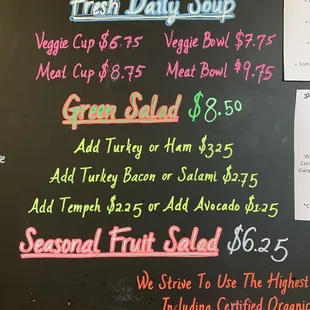 Fresh Daily Soup
Veggie Cup $6.75 Veggie Bowl $7.75
Meat Cup $8.75 Meat Bowl $9.75
Green Salad $8.50
Add Turkey or Ham $3.25
Add Turkey Bacon or Salami $2.75
Add Tempeh $2.25 or Add Avocado $1.25
Seasonal Fruit Salad $6.25
We Strive To Use The Highest
Including Certified Organic